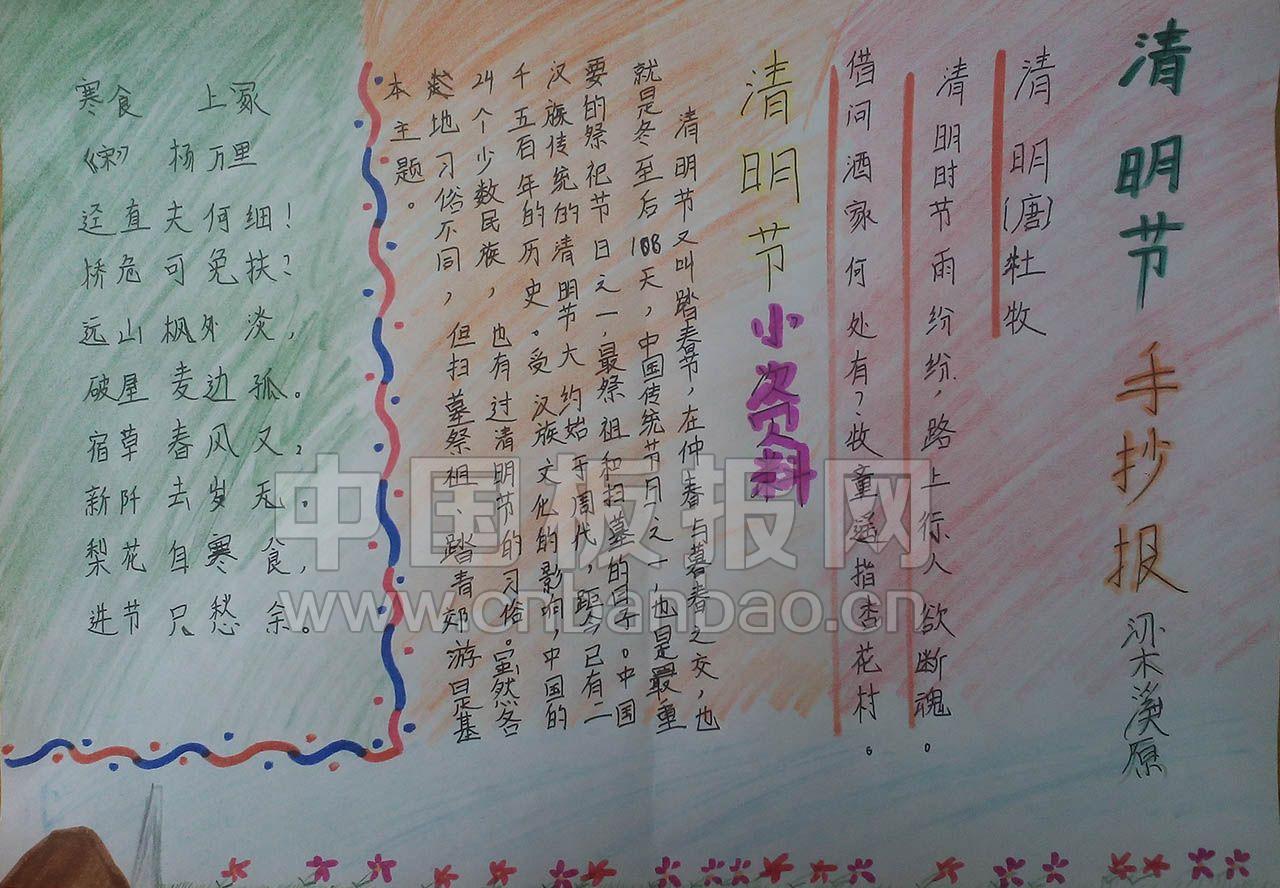 清明节手抄报
清明(唐)牡牧
清明时节雨纷纷，路上行人欲断魂。
借问酒家何处有？牧童遥指杏花村。
清明节小资料
清明节又叫踏春节，在仲春与暮春之交，也
就是冬至后108天，中国传统节日之一，也是最重
要的祭祀节日之一，最祭祖和扫墓的日子。中国
汉族传统的清明节大约始于周代，距今已有二
千五百年的历史。受汉族文化的影响，中国的
24个少数民族，也有过清明节的习俗。虽然各
地习俗不同，但扫墓祭祖、踏青郊游是基
本主题。
寒食 上冢
《宋》 杨万里
迳直夫何细！
桥危可免扶？
远山枫外淡，
破屋麦边孤。
宿草春风又，
新阡去岁无。
梨花自寒食，
进节只愁余。
中国板报网
www.cnbanbao.cn